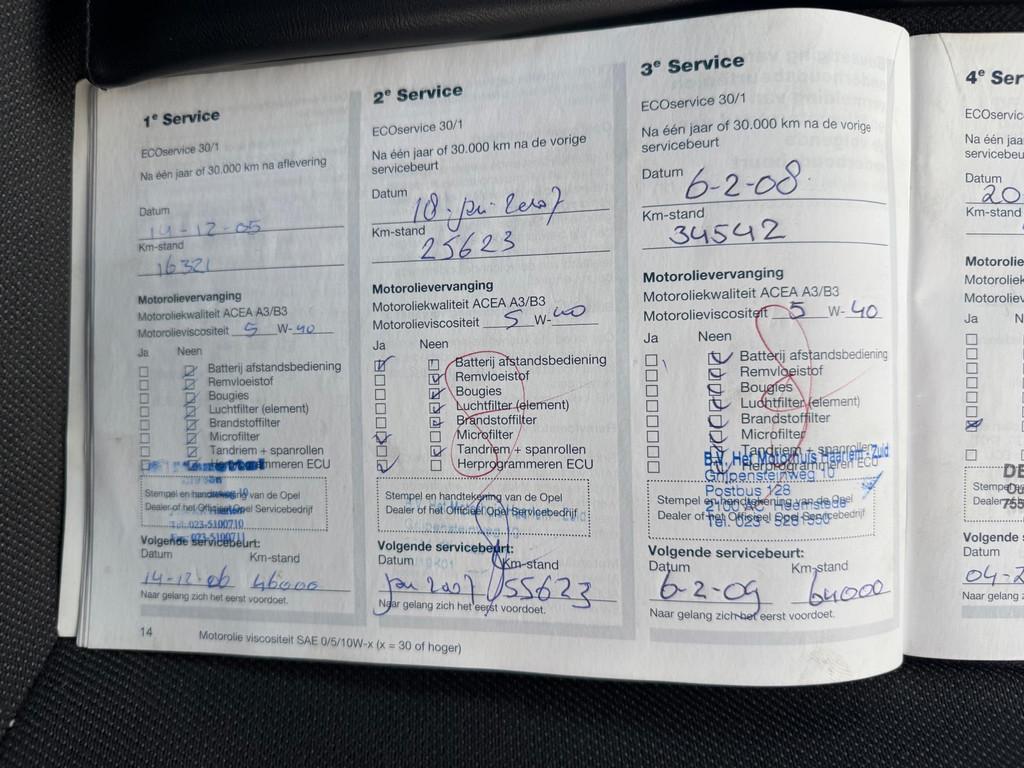 1e Service
ECOservice 30/1
Na één jaar of 30.000 km na aflevering
Datum
14-12-05
Km-stand
16321
Motorolievervanging
Motoroliekwaliteit ACEA A3/B3
Motorolieviscositeit 5 W-40
Ja Neen
Batterij afstandsbediening
Remvloeistof
Bougies
Luchtfilter (element)
Brandstoffilter
Microfilter
Tandriem + spanrollen
Herprogrammeren ECU
Stempel en handtekening van de Opel
Dealer of het Officieel Opel Servicebedrijf
Tel. 023-5100710
Fax 023-5100711
Volgende servicebeurt:
Datum Km-stand
14-12-06 46000
Naar gelang zich het eerst voordoet.
14
Motorolie viscositeit SAE 0/5/10W-x (x = 30 of hoger)
2e Service
ECOservice 30/1
Na één jaar of 30.000 km na de vorige
servicebeurt
Datum
18 2007
Km-stand
25623
Motorolievervanging
Motoroliekwaliteit ACEA A3/B3
Motorolieviscositeit 5 W-40
Ja Neen
Batterij afstandsbediening
Remvloeistof
Bougies
Luchtfilter (element)
Brandstoffilter
Microfilter
Tandriem + spanrollen
Herprogrammeren ECU
Stempel en handtekening van de Opel
Dealer of het Officieel Opel Servicebedrijf
Volgende servicebeurt:
Datum Km-stand
2007 55623
Naar gelang zich het eerst voordoet.
3e Service
ECOservice 30/1
Na één jaar of 30.000 km na de vorige
servicebeurt
Datum
6-2-08
Km-stand
34542
Motorolievervanging
Motoroliekwaliteit ACEA A3/B3
Motorolieviscositeit 5 W-40
Ja Neen
Batterij afstandsbediening
Remvloeistof
Bougies
Luchtfilter (element)
Brandstoffilter
Microfilter
Tandriem + spanrollen
Herprogrammeren ECU
B.V. Het Motorhuis Haarlem-Zuid
Grijpensteinweg 10
Postbus 128
2100 AC Heemstede
Tel. 023 - 5281550
Stempel en handtekening van de Opel
Dealer of het Officieel Opel Servicebedrijf
Volgende servicebeurt:
Datum Km-stand
6-2-09 64000
Naar gelang zich het eerst voordoet.
4e Ser
ECOservic
Na één jaa
servicebeu
Datum
20
Km-stand
Motorolie
Motoroliek
Motoroliev
Ja
DE
Stempe
Dealer
755
Volgende
Datum
04-2
Naar gelang